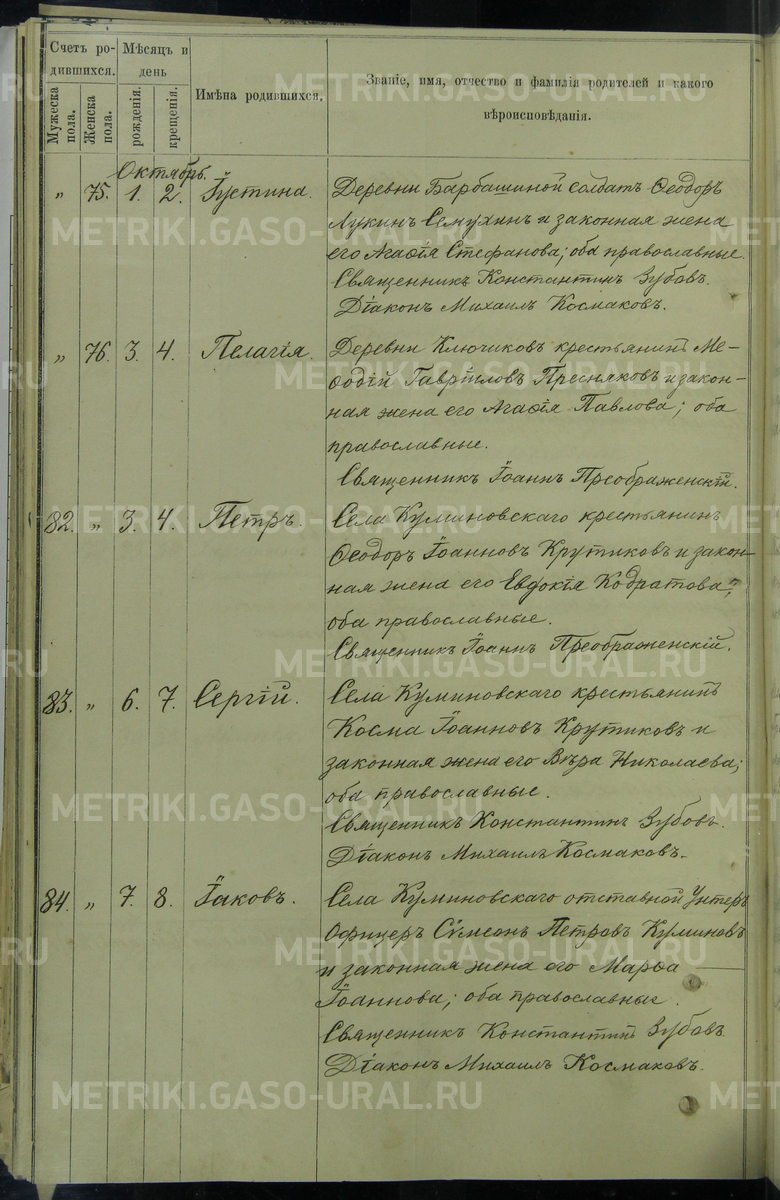 Счетъ ро-
дившихся.
Мѣсяцъ и
день
Мужеска
пола.
Женска
пола.
рожденія.
крещенія.
Имѣна родившихся.
Званіе, имя, отчество и фамилія родителей и какого
вѣроисповѣданія.
Октябрь.
„ 75. 1. 2. Іустина. Деревни Барбашиной солдатъ Ѳеодоръ
Лукинъ Семухинъ и законная жена
его Агаѳія Стефанова; оба православные.
Священникъ Константинъ Зубовъ.
Діаконъ Михаилъ Космаковъ.
„ 76. 3. 4. Пелагія. Деревни Ключиковъ крестьянинъ Ме-
ѳодій Гавріиловъ Пресняковъ и закон-
ная жена его Агаѳія Павлова; оба
православные.
Священникъ Іоаннъ Преображенскій.
82. „ 3. 4. Петръ. Села Куминовскаго крестьянинъ
Ѳеодоръ Іоанновъ Крутиковъ и закон-
ная жена его Евдокія Кодратова;
оба православные.
Священникъ Іоаннъ Преображенскій.
83. „ 6. 7. Сергій. Села Куминовскаго крестьянинъ
Косма Іоанновъ Крутиковъ и
законная жена его Вѣра Николаева;
оба православные.
Священникъ Константинъ Зубовъ.
Діаконъ Михаилъ Космаковъ.
84. „ 7. 8. Іаковъ. Села Куминовскаго отставной Унтеръ
Офицеръ Сѵмеонъ Петровъ Куминовъ
и законная жена его Марѳа
Іоаннова; оба православные.
Священникъ Константинъ Зубовъ
Діаконъ Михаилъ Космаковъ.
METRIKI.GASO-URAL.RU